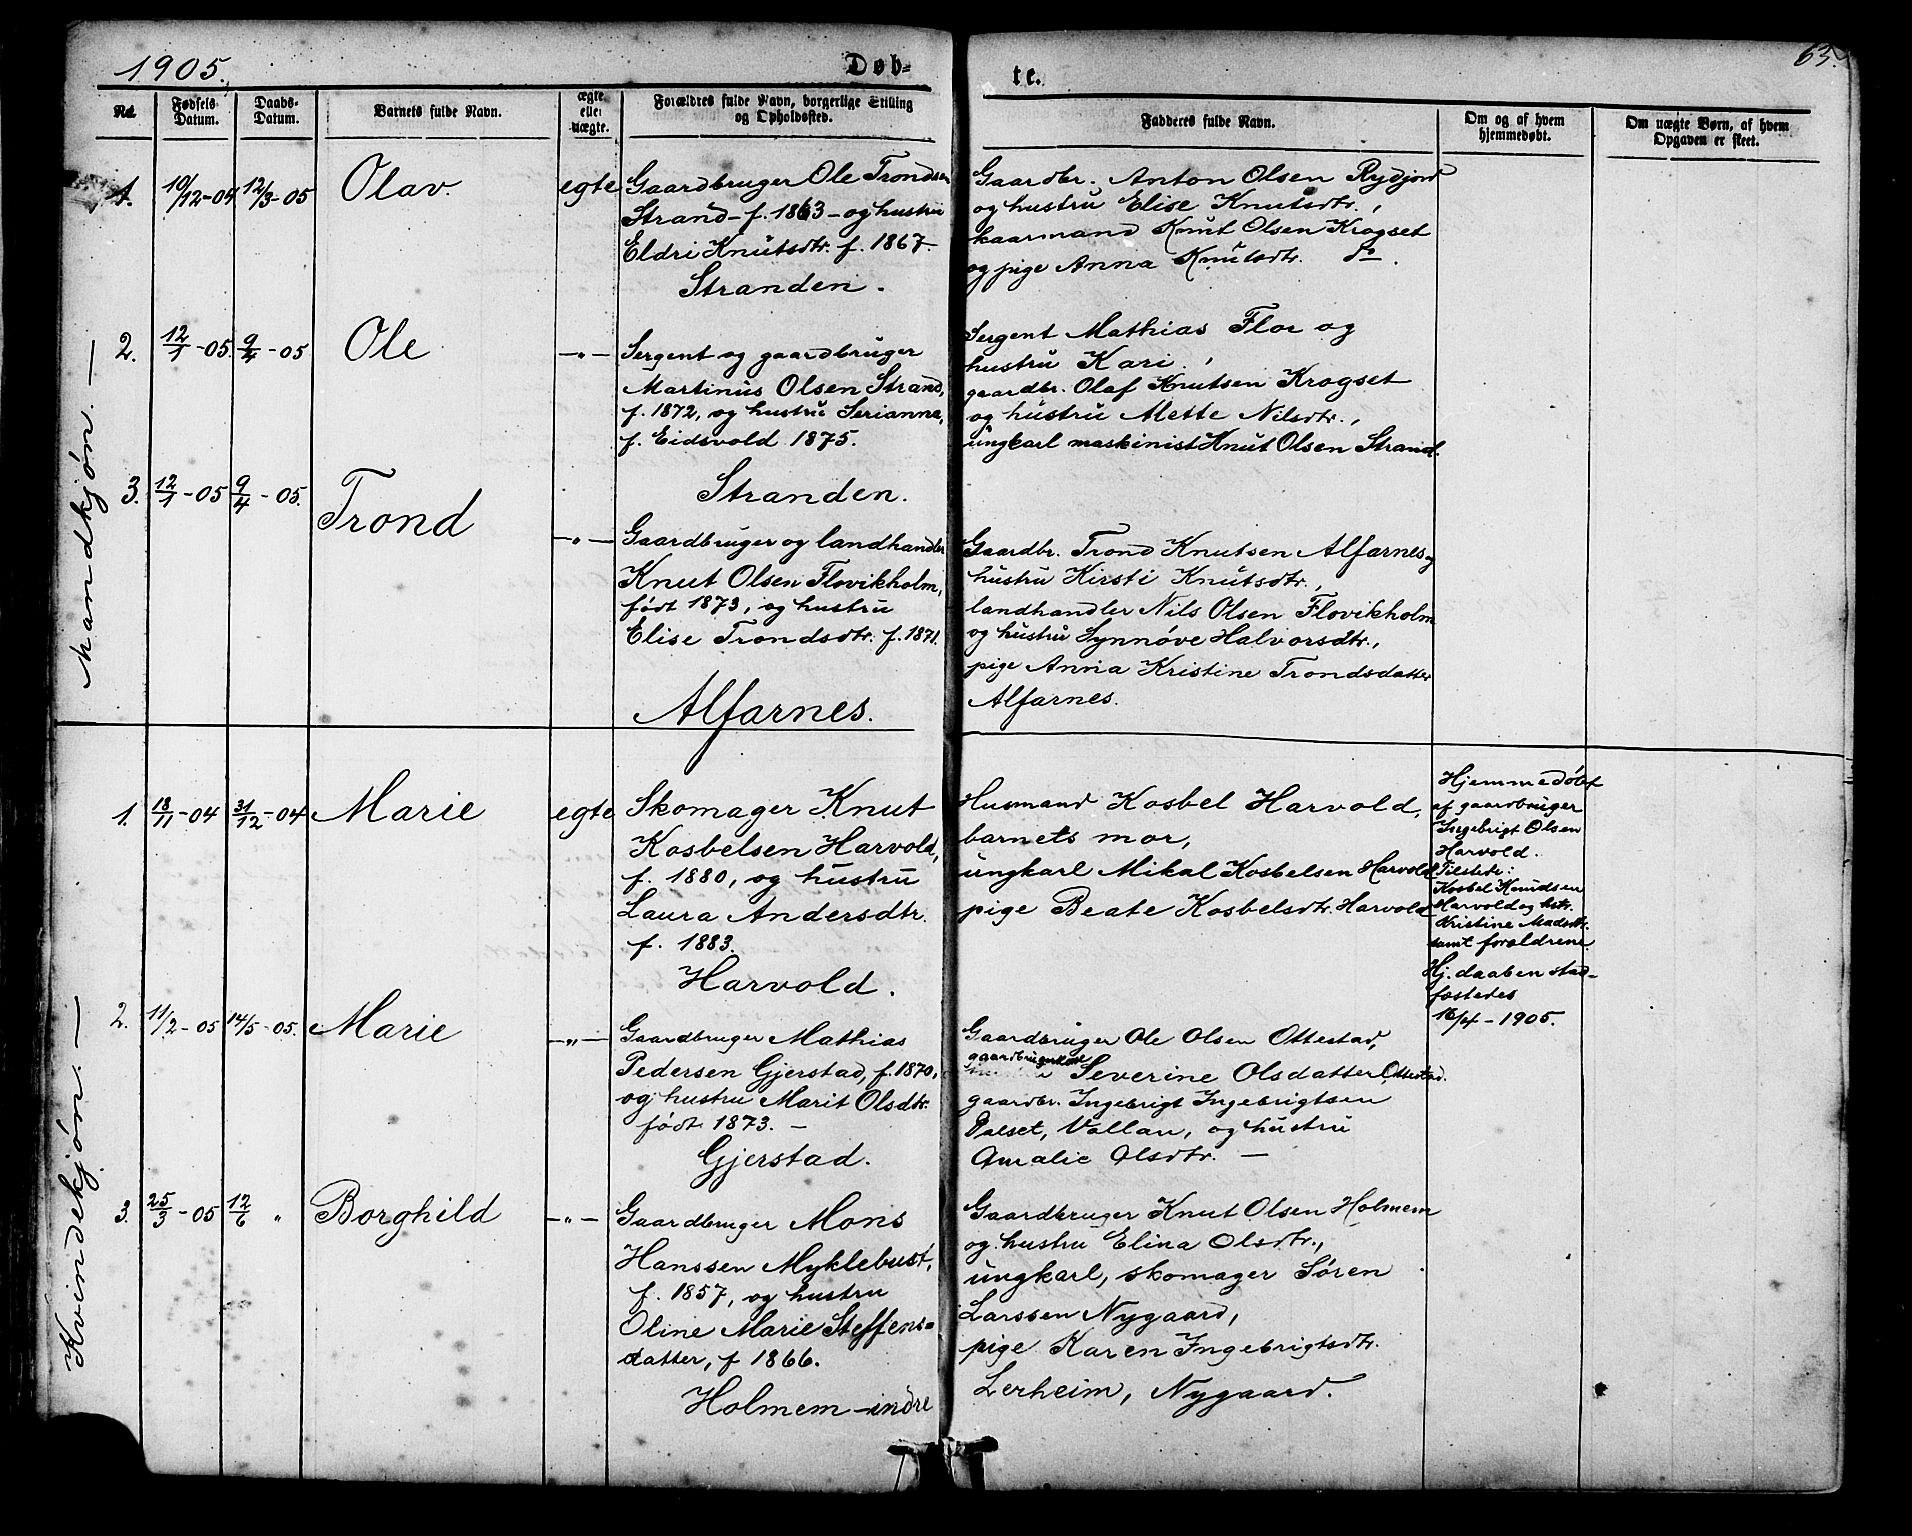 1905.
Døb-
te.
63.
No.
Fødsels-
Datum.
Daabs-
Datum.
Barnets fulde Navn.
ægte
eller
uægte.
Forældres fulde Navn, borgerlige Stilling
og Opholdssted.
Faddernes fulde Navn.
Om og af hvem
hjemmedøbt.
Om uægte Børn, af hvem
Opgaven er skeet.
Mandkjøn. —
1.
10/12-04
12/3-05
Olav
egte
Gaardbruger Ole Trondsen
Strand - f. 1863 - og hustru
Eldri Knutsdtr. f. 1867.
Stranden.
Gaardbr. Anton Olsen Rydjord
og hustru Elise Knutsdtr.,
kaarmand Knut Olsen Krogset
og pige Anna Knutsdtr. do.
2.
12/1-05
9/4-05
Ole
—"—
Sergent og gaardbruger
Martinus Olsen Strand,
f. 1872, og hustru Serianna,
f. Eidsvold 1875.
Stranden.
Sergent Mathias Flor og
hustru Kari,
gaardbr. Olaf Knutsen Krogset
og hustru Mette Nilsdtr.,
ungkarl maskinist Knut Olsen Strand.
3.
12/1-05
9/4-05.
Trond
—"—
Gaardbruger og landhandler
Knut Olsen Flovikholm,
født 1873, og hustru
Elise Trondsdtr. f. 1871.
Alfarnes.
Gaardbr. Trond Knutsen Alfarnes og
hustru Kirsti Knutsdtr.,
landhandler Nils Olsen Flovikholm
og hustru Synnøve Halvorsdtr.,
pige Anna Kristine Trondsdatter
Alfarnes.
Kvindekjøn. —
1.
18/11-04
31/12-04
Marie
egte
Skomager Knut
Kosbelsen Harvold,
f. 1880, og hustru
Laura Andersdtr.
f. 1883.
Harvold.
Husmand Kosbel Harvold,
barnets mor,
ungkarl Mikal Kosbelsen Harvold
pige Beate Kosbelsdtr. Harvold
Hjemmedøbt
af gaardbruger
Ingebrigt Olsen
Harvold.
Tilstede:
Kosbel Knudsen
Harvold og hstr.
Kristine Madsdtr.
samt forældrene.
Hj. daaben stad-
fæstedes
16/4-1905.
2.
11/2-05
14/5-05.
Marie
—"—
Gaardbruger Mathias
Pedersen Gjerstad, f. 1870,
og hustru Marit Olsdtr.
født 1873. —
Gjerstad.
Gaardbruger Ole Olsen Ottestad,
Severine Olsdatter Ottestad.
gaardbr. Ingebrigt Ingebrigtsen
Dalset, Vollan, og hustru
Amalie Olsdtr. —
3.
25/3-05
12/6 "
Borghild
—"—
Gaardbruger Mons
Hanssen Myklebust,
f. 1857, og hustru
Oline Marie Steffens-
datter, f 1866.
Holmem-indre
Gaardbruger Knut Olsen Holmem
og hustru Elina Olsdtr.,
ungkarl, skomager Søren
Larssen Nygaard,
pige Karen Ingebrigtsdtr.
Lerheim, Nygaard.